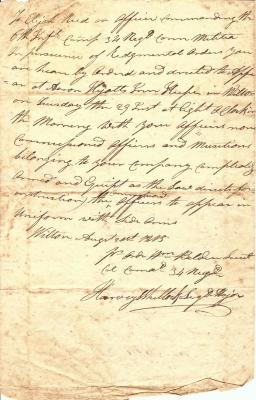 To Elijah Reed an Officer Commanding the
6th Compy 34 Regt Conn Militia
In presuence of Redgmental Orders you
are hearu by Ordred and directed to Appe
ar at Aaron Hyatts Inn Keeper in Wilton
on tuesday the 29 Inst at Eight oClock in
the Morning With your Officers non
Commissioned Officers and Musitions
belonging to your Company compleatly
Armed and Equipt as the Law directs for
instruction, the Officers to appear in
Uniform with Side Arms
Wilton Augst 1815
Pr Order Wm Belden Lieut
Col Comdt 34 Regt
Harvey Major